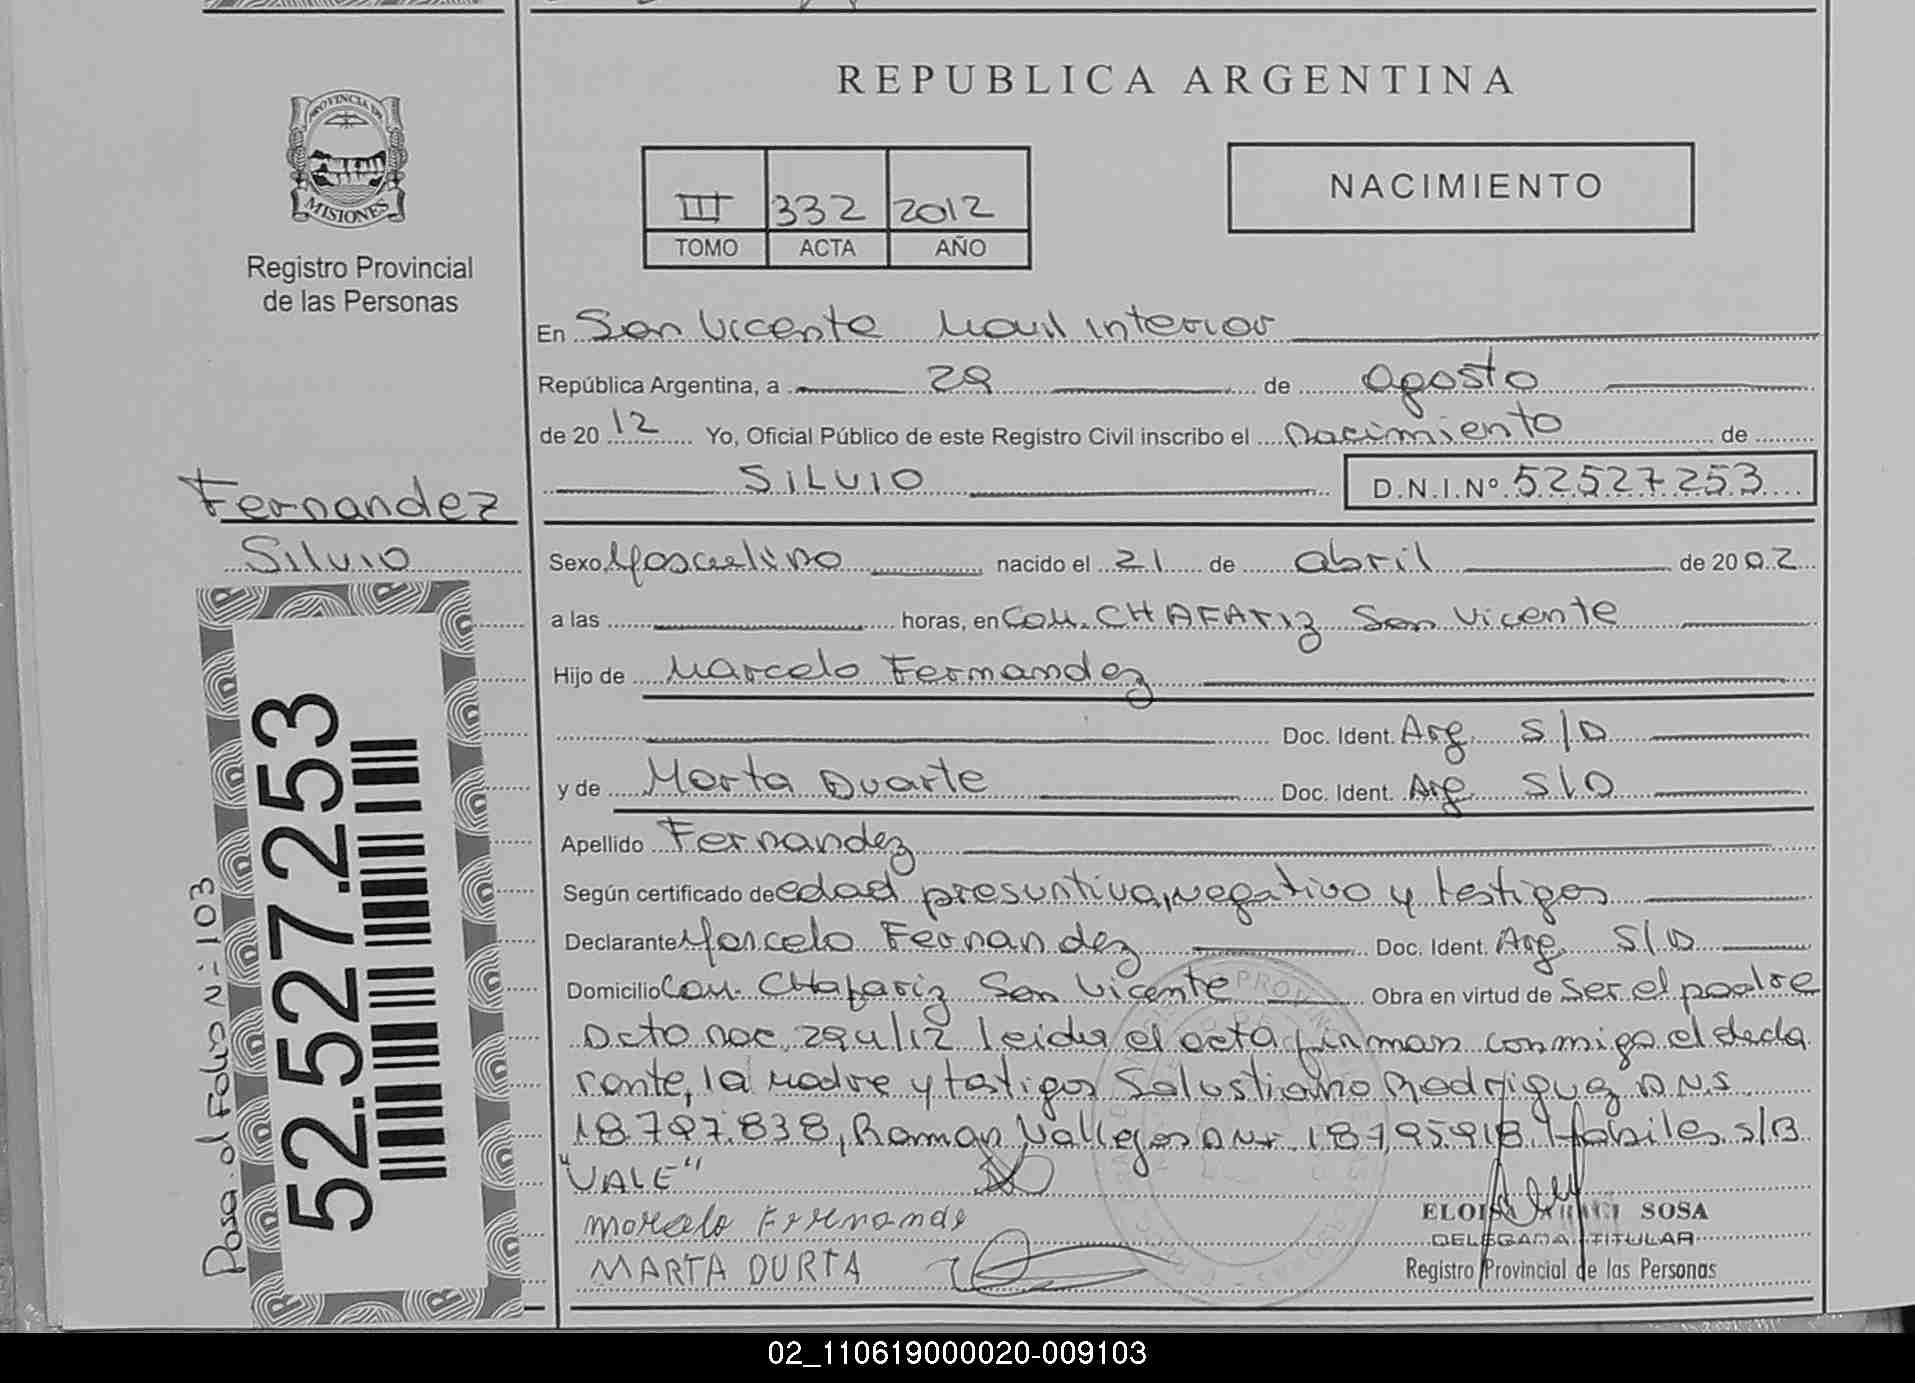 REPUBLICA ARGENTINA
PROVINCIA DE
MISIONES
Registro Provincial
de las Personas
III 332 2012
TOMO ACTA AÑO
NACIMIENTO
En San Vicente Movil interior
República Argentina, a 29 de agosto
de 20 12 Yo, Oficial Público de este Registro Civil inscribo el nacimiento de
SILVIO D.N.I.Nº 52527253
Fernandez
Silvio
Sexo Masculino nacido el 21 de abril de 20 02
a las horas, en Com. CHAFARIZ San Vicente
Hijo de Marcelo Fernandez
Doc. Ident. Arg. S/D
y de Marta Duarte Doc. Ident. Arg. S/D
Apellido Fernandez
Según certificado de edad presuntiva, negativo y testigos
Declarante Marcelo Fernandez Doc. Ident. Arg. S/D
Domicilio Com. CHafariz San Vicente Obra en virtud de ser el padre
Dcto nac. 294/12 leida el acta firman conmigo el decla
rante, la madre y testigos Salustiano Rodriguez D.N.I.
18.797.838, Roman Vallejos D.N.I. 18.795.918. Habiles s/B
"VALE"
Marcelo Fernande
MARTA DURTA
ELOISA SOSA
DELEGADA TITULAR
Registro Provincial de las Personas
52.527.253
Pasa al Folio Nº 103
02_110619000020-009103